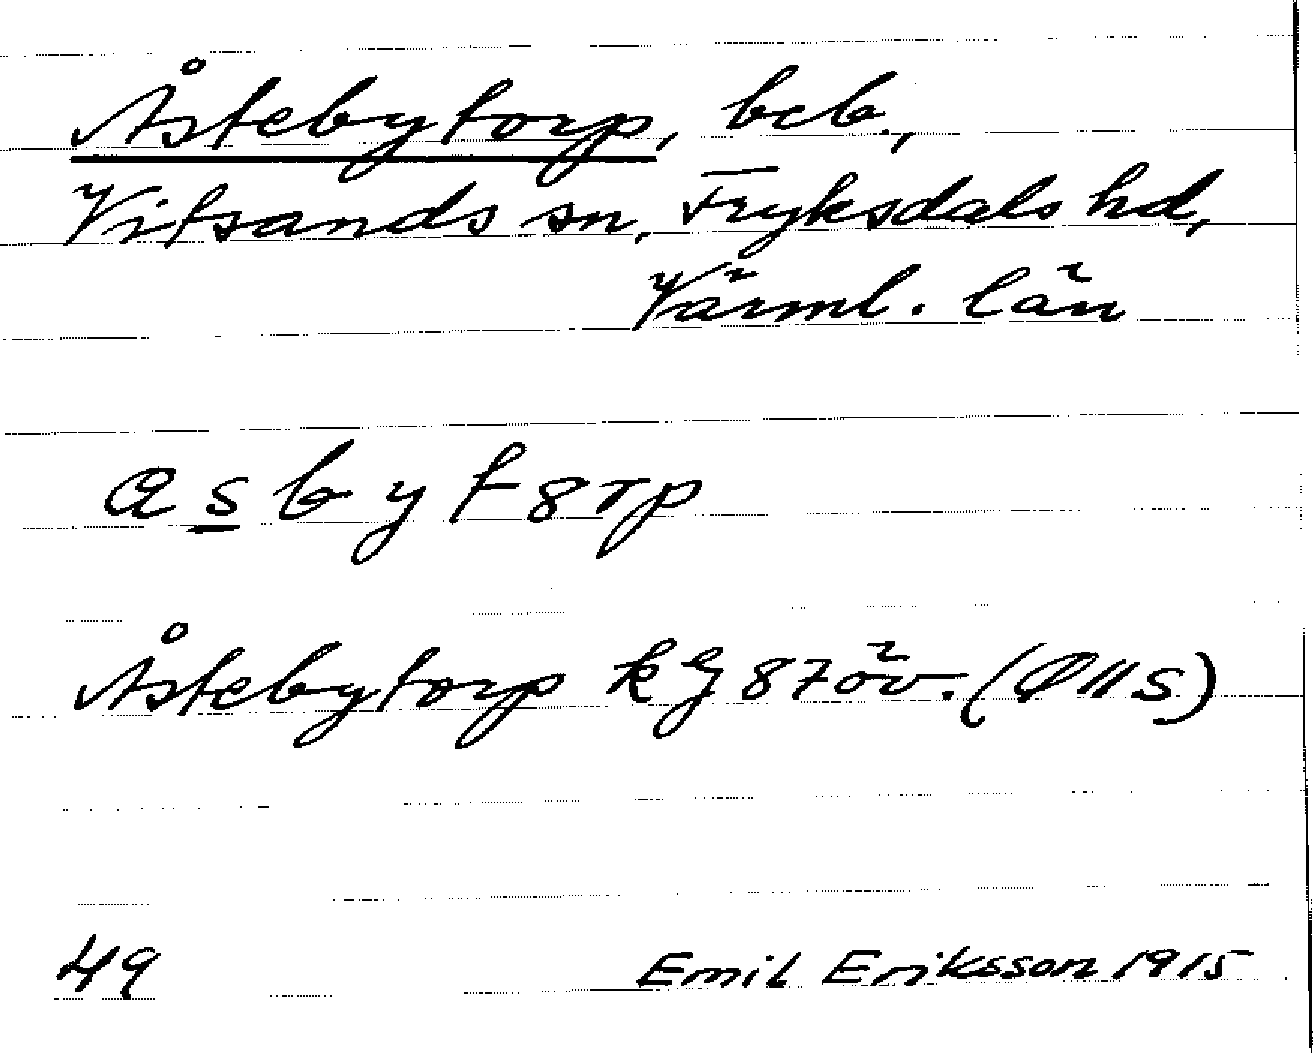 Åstebytorp, beb.,
Vitsands sn, Fryksdals hd,
Värml. län
a s b y t 8 r p
Åstebytorp k G 87 öv. (Ø11S)
49
Emil Eriksson 1915